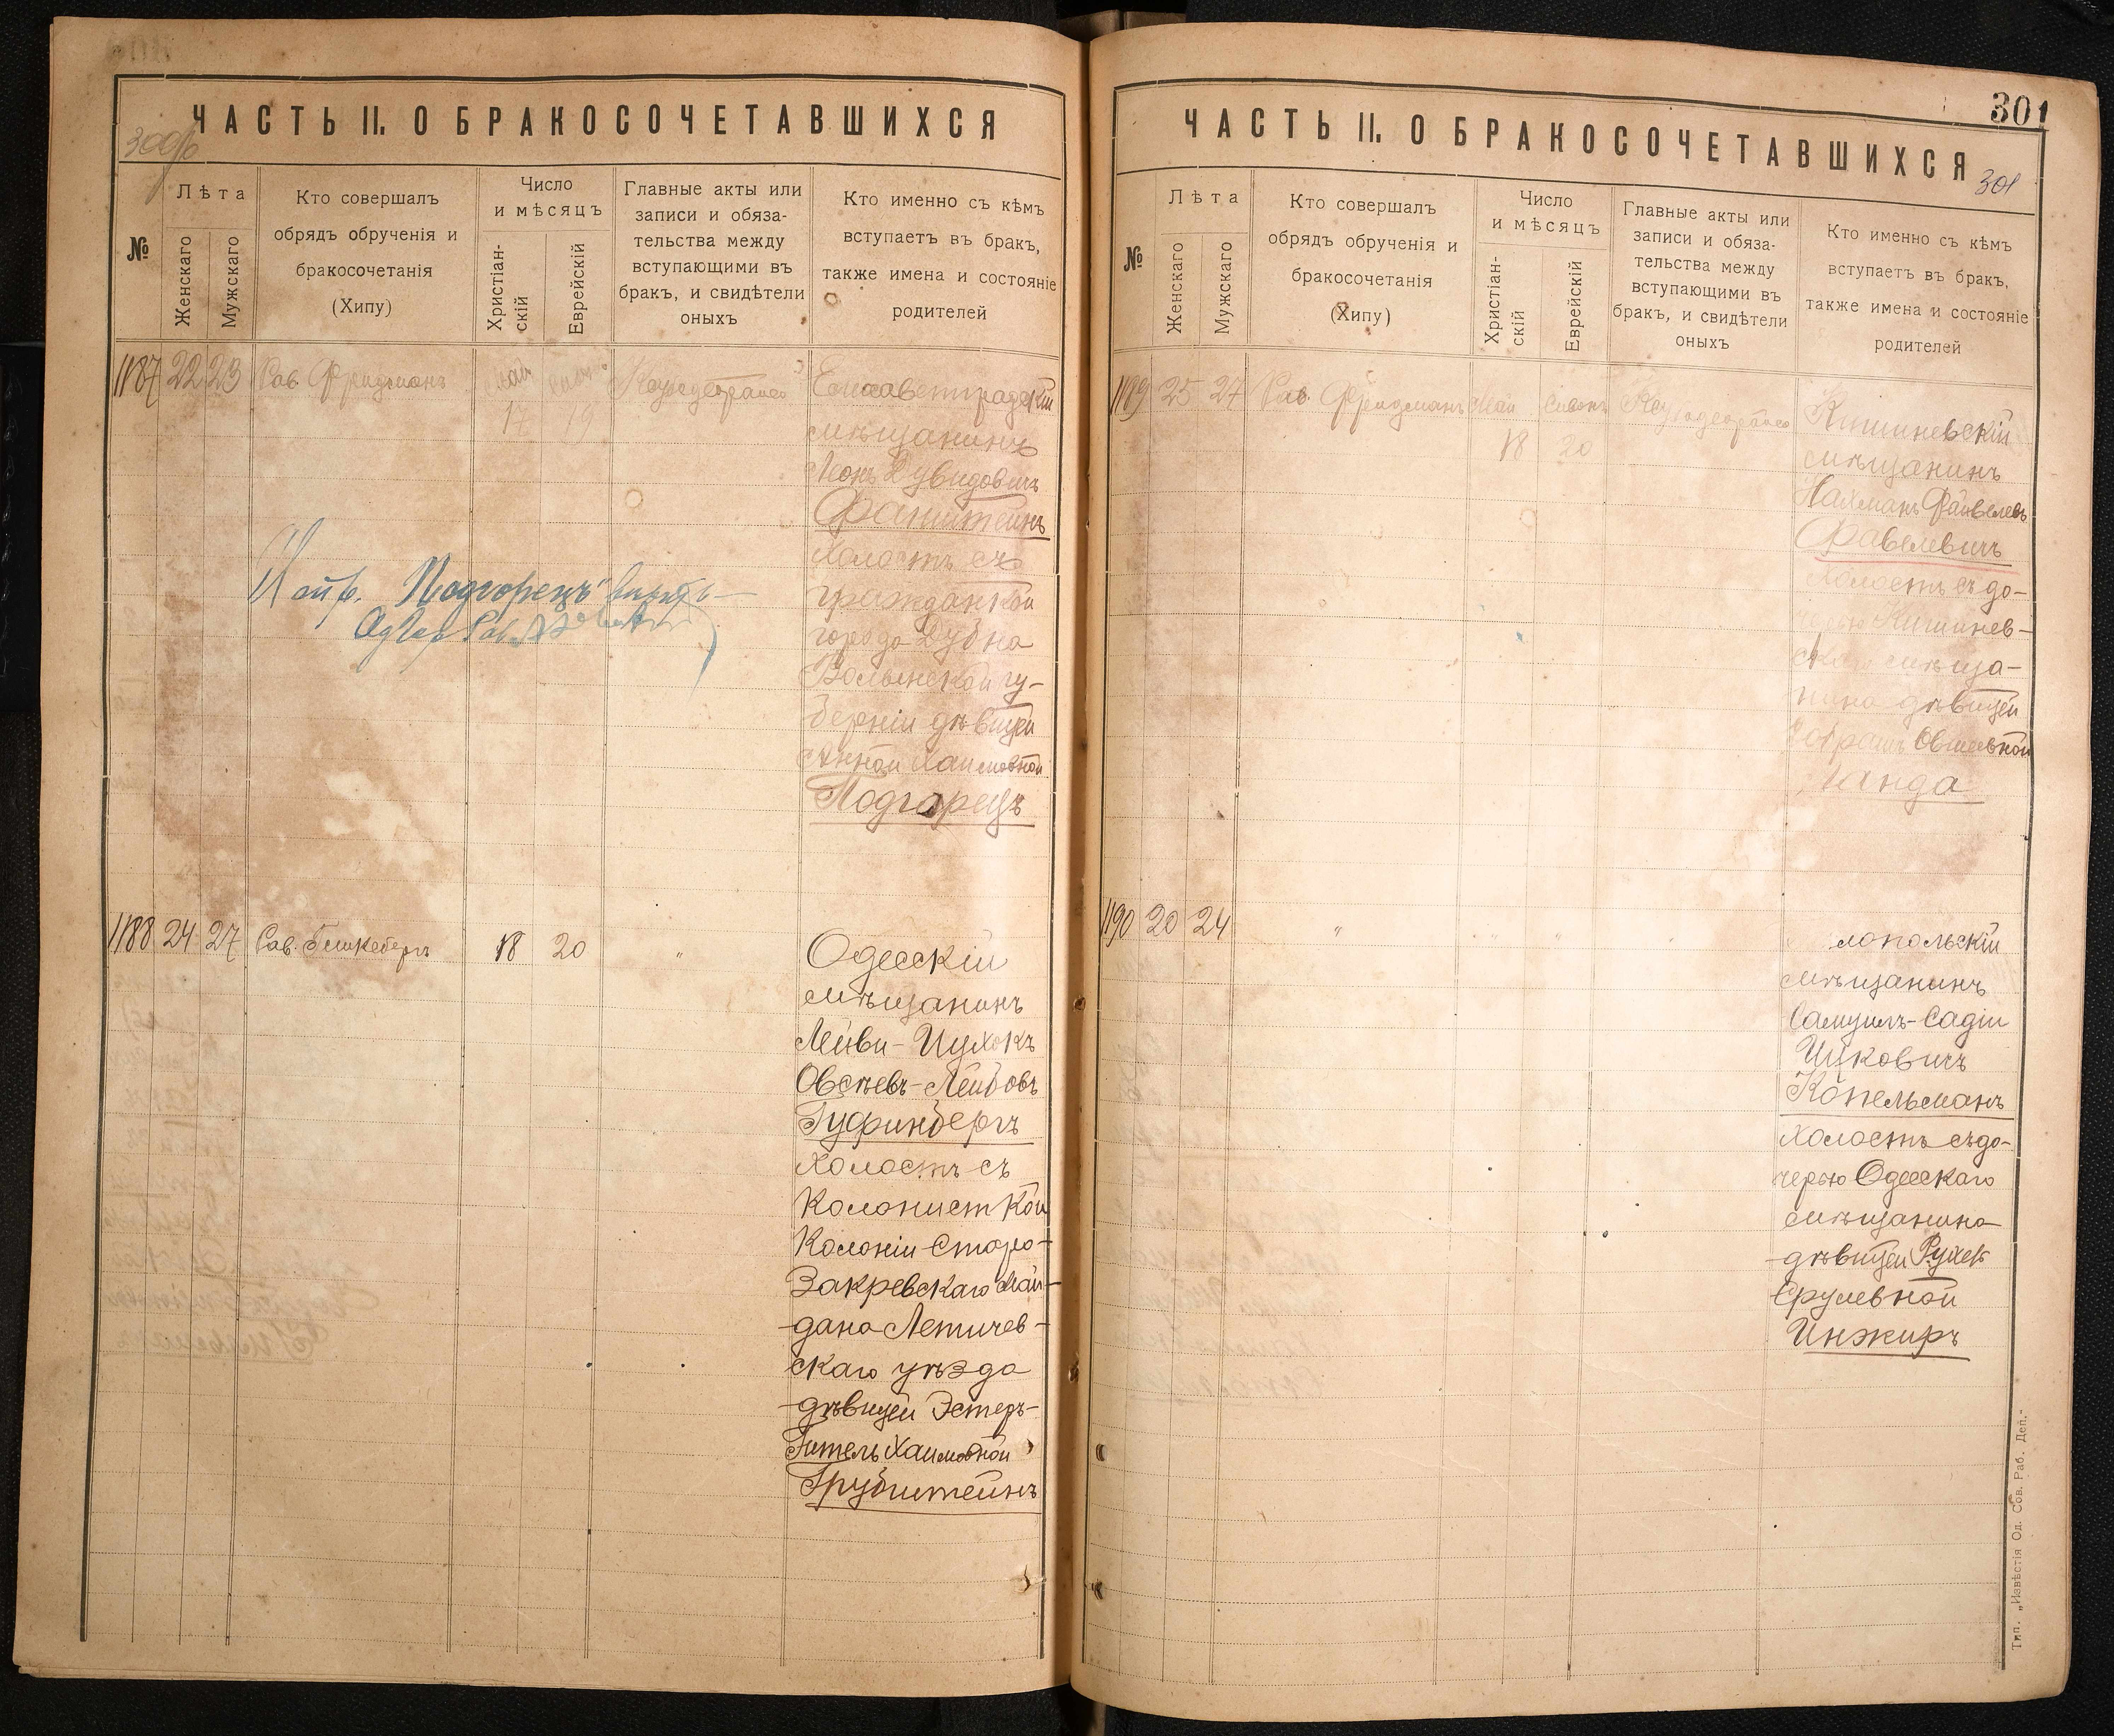 300об
ЧАСТЬ II. О БРАКОСОЧЕТАВШИХСЯ
№
Лѣта
Женскаго
Мужскаго
Кто совершалъ
обрядъ обрученія и
бракосочетанія
(Хипу)
Число
и мѣсяцъ
Христіан-
скій
Еврейскій
Главные акты или
записи и обяза-
тельства между
вступающими въ
бракъ, и свидѣтели
оныхъ
Кто именно съ кѣмъ
вступаетъ въ бракъ,
также имена и состояніе
родителей
1187 22 23 Рав. Фридманъ Май
17 19
Елисаветградскій
мѣщанинъ
Леонъ Дувидовичъ
Файнштейнъ
холостъ съ
гражданкой
города Дубна
Волынской гу-
берніи дѣвицей
Анной Хаимовной
Подгорецъ
"Подгорецъ" вѣрно
1188 24 27 Рав. 18 20 "
Одесскій
мѣщанинъ
Лейви-Ицхокъ
Овсѣевъ-Лейбовъ
Гуфинбергъ
холостъ съ
колонисткой
колоніи Старо-
Закревскаго Май-
дана Летичев-
скаго уѣзда
дѣвицей Эстеръ-
Гитель Хаимовной
Грубштейнъ
301
ЧАСТЬ II. О БРАКОСОЧЕТАВШИХСЯ
301
№
Лѣта
Женскаго
Мужскаго
Кто совершалъ
обрядъ обрученія и
бракосочетанія
(Хипу)
Число
и мѣсяцъ
Христіан-
скій
Еврейскій
Главные акты или
записи и обяза-
тельства между
вступающими въ
бракъ, и свидѣтели
оныхъ
Кто именно съ кѣмъ
вступаетъ въ бракъ,
также имена и состояніе
родителей
1189 25 27 Рав. Фридманъ Май Сивонъ
18 20
Кишиневскій
мѣщанинъ
Нахманъ Файвелевъ
Фавелевичъ
холостъ съ до-
черью Кишинев-
скаго мѣща-
нина дѣвицей
Овшеевной
Ланда
1190 20 24 " " " "
лопольскій
мѣщанинъ
Самуилъ-Садіи
Ицковичъ
Копельманъ
холостъ съ до-
черью Одесскаго
мѣщанина
дѣвицей Рухель
Срулевной
Инжиръ
Тип. „Извѣстія Од. Сов. Раб. Деп.-